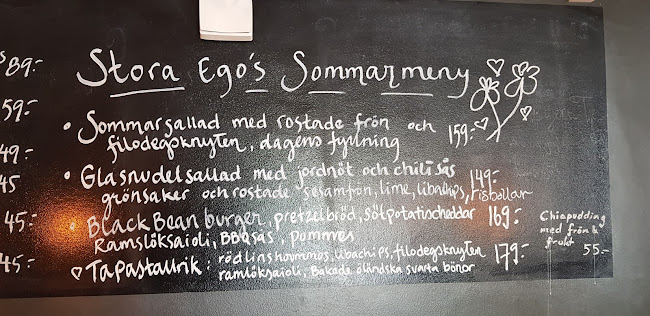 89:-
59:-
49:-
45
45:-
45:-
Stora Ego's Sommarmeny
• Sommarsallad med rostade frön och
filodegsknyten, dagens fyllning 159:-
• Glasnudelsallad med jordnöt och chilisås
grönsaker och rostade sesamfrön, lime, libachips, risbollar 149:-
• Black Bean burger, pretzelbröd, sötpotatischeddar 169:-
Ramslöksaioli, BBQsås, pommes
Tapastallrik: rödlinshommos, libachips, filodegsknyten 179:-
ramlöksaioli, Bakade öländska svarta bönor
Chiapudding
med frön &
frukt 55:-